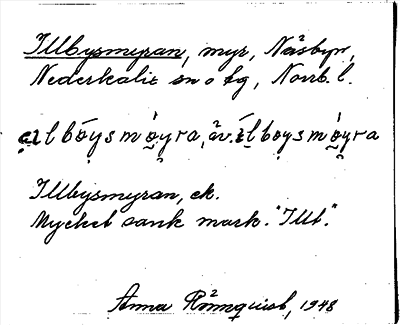 Illbysmyran, myr, Näsbyn,
Nederkalix sn o fg, Norrb. l.
ęɩlbǫ́ysmọ̀yra, äv. ílbǫysmọ̀yra
Illbysmyran, ek.
Mycket sank mark. "Illt."
Anna Rönnquist, 1948